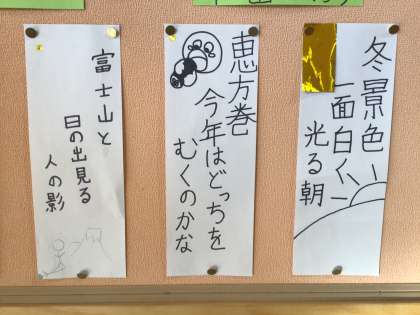 冬景色
一面白く
光る朝
恵方巻
今年はどっちを
むくのかな
富士山と
日の出見る
人の影